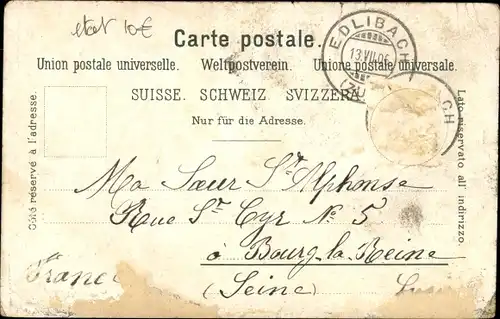 etat 10€
Carte postale.
Union postale universelle. Weltpostverein. Unione postale universale.
SUISSE. SCHWEIZ SVIZZERA
Nur für die Adresse.
EDLIBACH
13.VII.06
(ZU
CH
Côté réservé à l'adresse.
Lato riservato all' indirizzo.
Ma Sœur St Alphonse
Rue St Cyr No 5
à Bourg-la-Reine
(Seine)
Franc